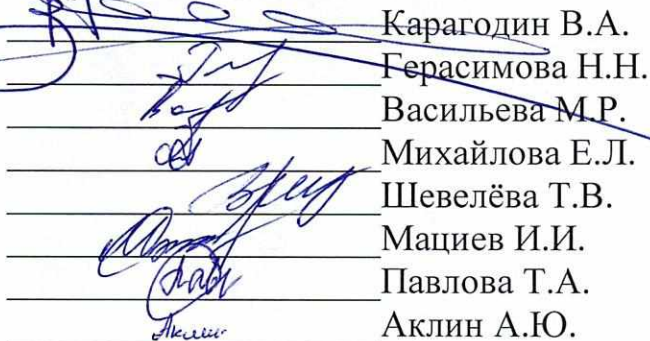 Карагодин В.А.
Герасимова Н.Н.
Васильева М.Р.
Михайлова Е.Л.
Шевелёва Т.В.
Мациев И.И.
Павлова Т.А.
Аклин А.Ю.